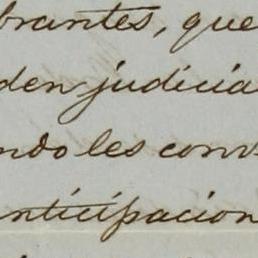 brantes, que
den judicia
ndo les conv
nticipacion